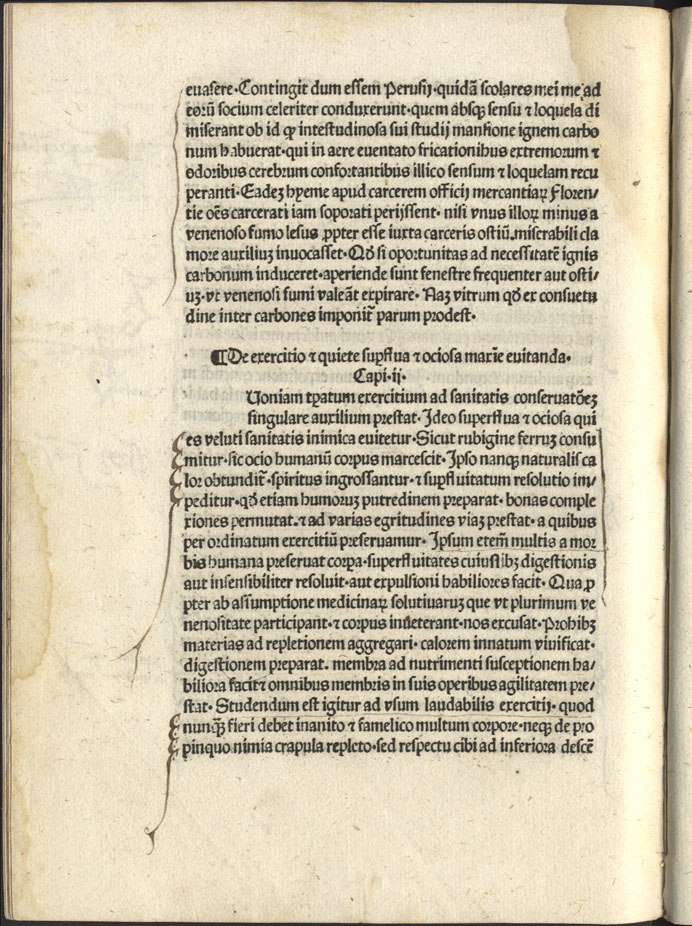 euasere·Contingit dum essem Perusij·quidā scolares mei me ad
eorū socium celeriter conduxerunt·quem absqꝫ sensu ⁊ loquela di
miserant ob id ꝙ intestudinosa sui studij mansione ignem carbo
num habuerat·qui in aere euentato fricationibus extremorum ⁊
odoribus cerebrum confortantibus illico sensum ⁊ loquelam recu
peranti·Eadeꝫ hyeme apud carcerem officij mercantiaꝝ Floren/
tie oēs carcerati iam soporati perijssent· nisi vnus illoꝝ minus a
venenoso fumo lesus ꝓpter esse iuxta carceris ostiū.miserabili cla
more auxiliuꝫ inuocasset·Qđ si oportunitas ad necessitatē ignis
carbonum induceret·aperiende sunt fenestre frequenter aut osti/
uꝫ·vt venenosi fumi valeāt expirare· Naꝫ vitrum qđ ex consuetu
dine inter carbones imponiť parum prodest·
¶De exercitio ⁊ quiete suꝑflua ⁊ ociosa maxīe euitanda·
Capi·ij·
Uoniam tꝑatum exercitium ad sanitatis conseruatōeꝫ
singulare auxilium prestat·Ideo superflua ⁊ ociosa qui
es veluti sanitatis inimica euitetur·Sicut rubigine ferruꝫ consu
mitur·sic ocio humanū corpus marcescit·Ipso nanqꝫ naturalis ca
lor obtundiť·spiritus ingrossantur·⁊ supfluitatum resolutio im/
peditur·qđ etiam humoruꝫ putredinem preparat·bonas comple
xiones permutat.⁊ ad varias egritudines viaꝫ prestat·a quibus
per ordinatum exercitiū preseruamur· Ipsum etem̄ multis a mor
bis humana preseruat corpa·superfluitates cuiuslibꝫ digestionis
aut insensibiliter resoluit·aut expulsioni habiliores facit· Qua ꝓ
pter ab assumptione medicinaꝝ solutiuaruꝫ que vt plurimum ve
nenositate participant·⁊ corpus inueterant·nos excusat·Prohibꝫ
materias ad repletionem aggregari· calorem innatum viuificat·
digestionem preparat. membra ad nutrimenti susceptionem ha/
biliora facit⁊ omnibus membris in suis operibus agilitatem pre/
stat· Studendum est igitur ad vsum laudabilis exercitij· quod
nunqꝫ̄ fieri debet inanito ⁊ famelico multum corpore·neqꝫ de pro
pinquo nimia crapula repleto·sed respectu cibi ad inferiora descē